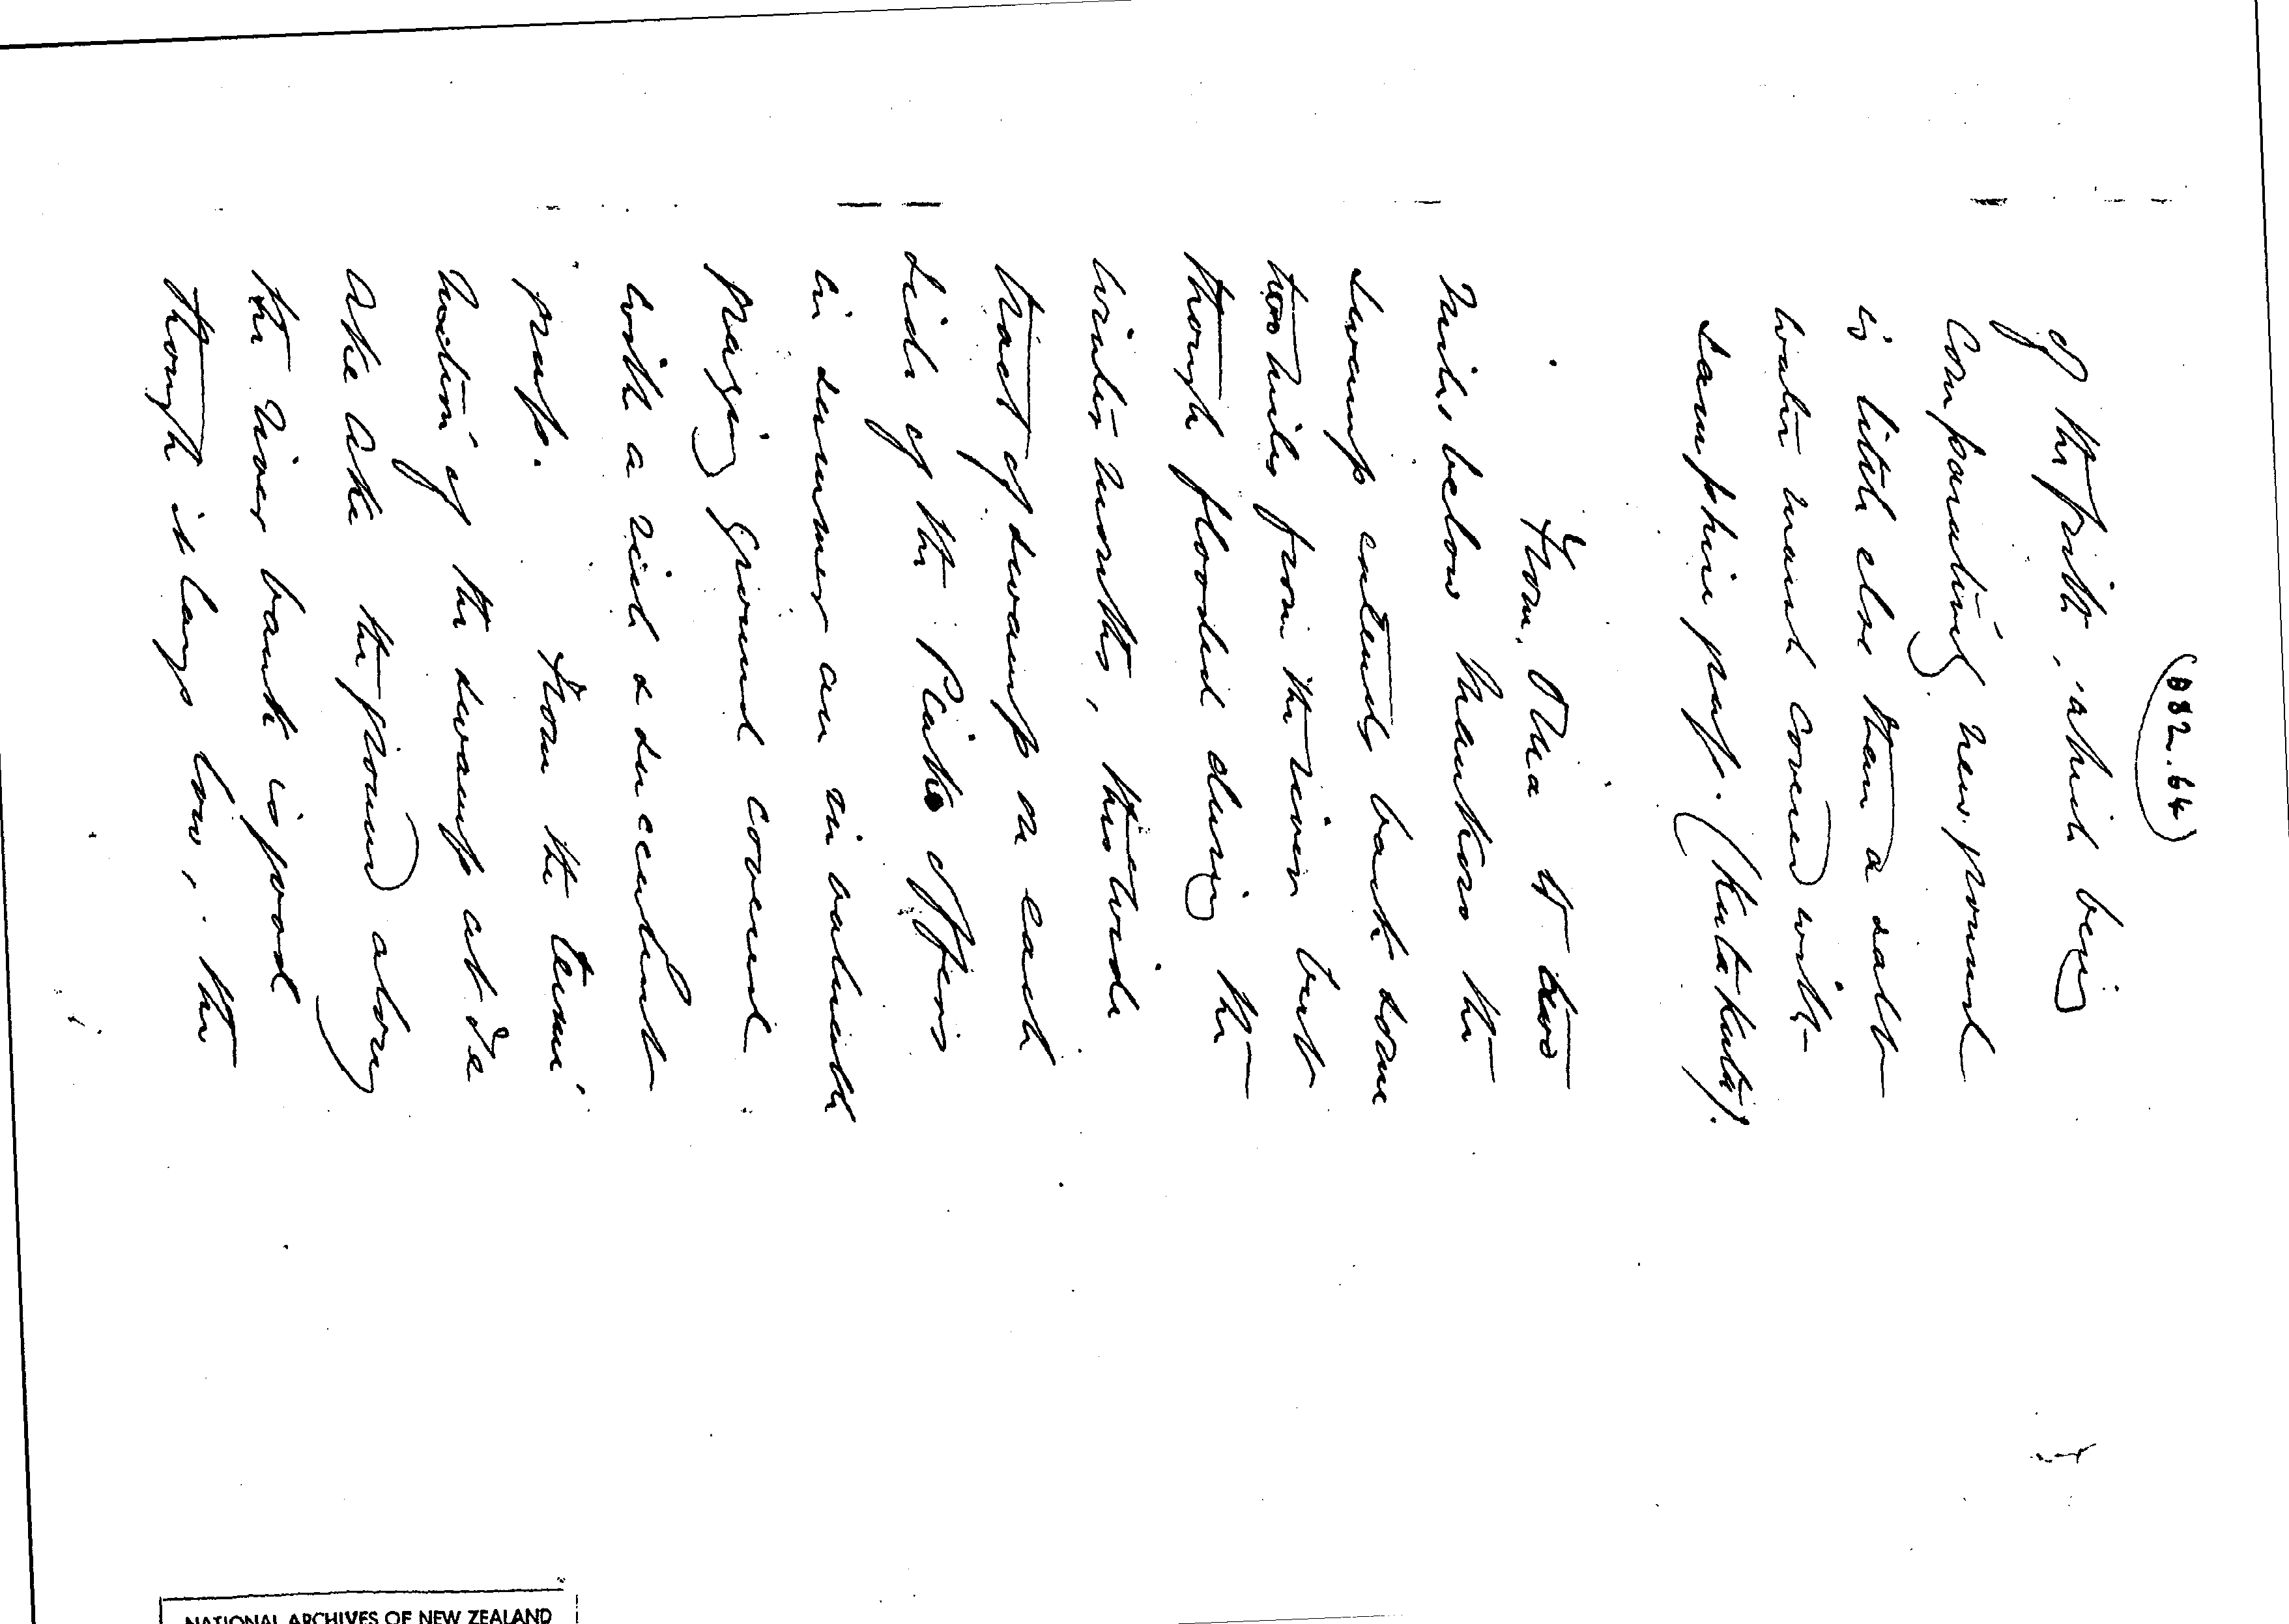 (882.64)
of the firth, which being
comparatively new ground
is little else than a salt
water marsh covered with
samphire grass. (Kutakuta).
From Ohua to two
miles below Maukoro the
swamp extends back some
two miles from the river but
though flooded during the
winter months, this wide
tract of swamp on each
side of the Piako offers
in summer an invaluable
grazing ground covered
with a rich & succulent
grass.
From the termi-
nation of the swamp at Te
Ake Ake the ground along
the river bank is good
though it lays low, the
NATIONAL ARCHIVES OF NEW ZEALAND